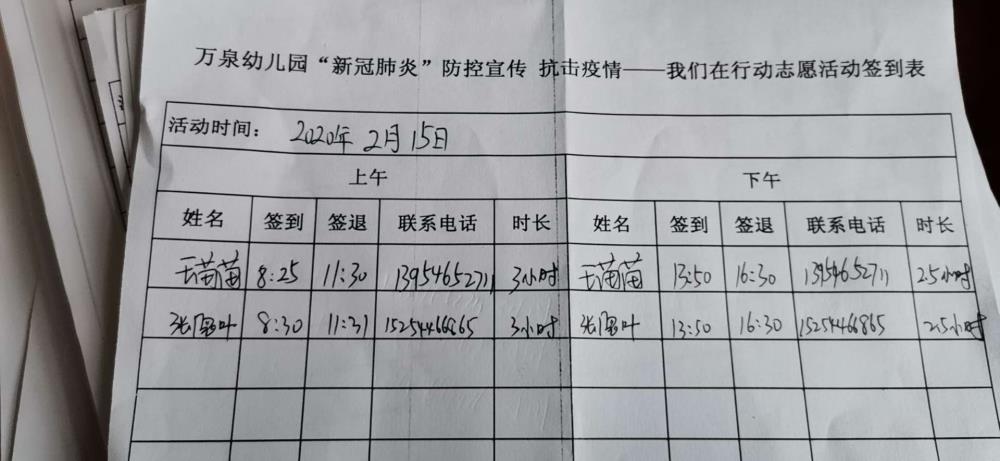 万泉幼儿园“新冠肺炎”防控宣传 抗击疫情——我们在行动志愿活动签到表
活动时间： 2020年2月15日
上午 下午
姓名 签到 签退 联系电话 时长 姓名 签到 签退 联系电话 时长
王苗苗 8:25 11:30 13954652711 3小时 王苗苗 13:50 16:30 13954652711 2.5小时
张 叶 8:30 11:31 15254466865 3小时 张 叶 13:50 16:30 15254466865 2.5小时